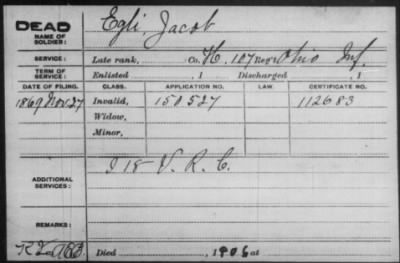 DEAD Egli, Jacob
NAME OF SOLDIER:
SERVICE: Late rank, Co. H, 107 Reg't Ohio Inf.
TERM OF SERVICE: Enlisted , 1 Discharged , 1
DATE OF FILING. CLASS. APPLICATION NO. LAW. CERTIFICATE NO.
1869 Nov. 27 Invalid, 150527 112683
Widow,
Minor,
ADDITIONAL SERVICES: I 18 V. R. C.
REMARKS:
Died , 1906 at